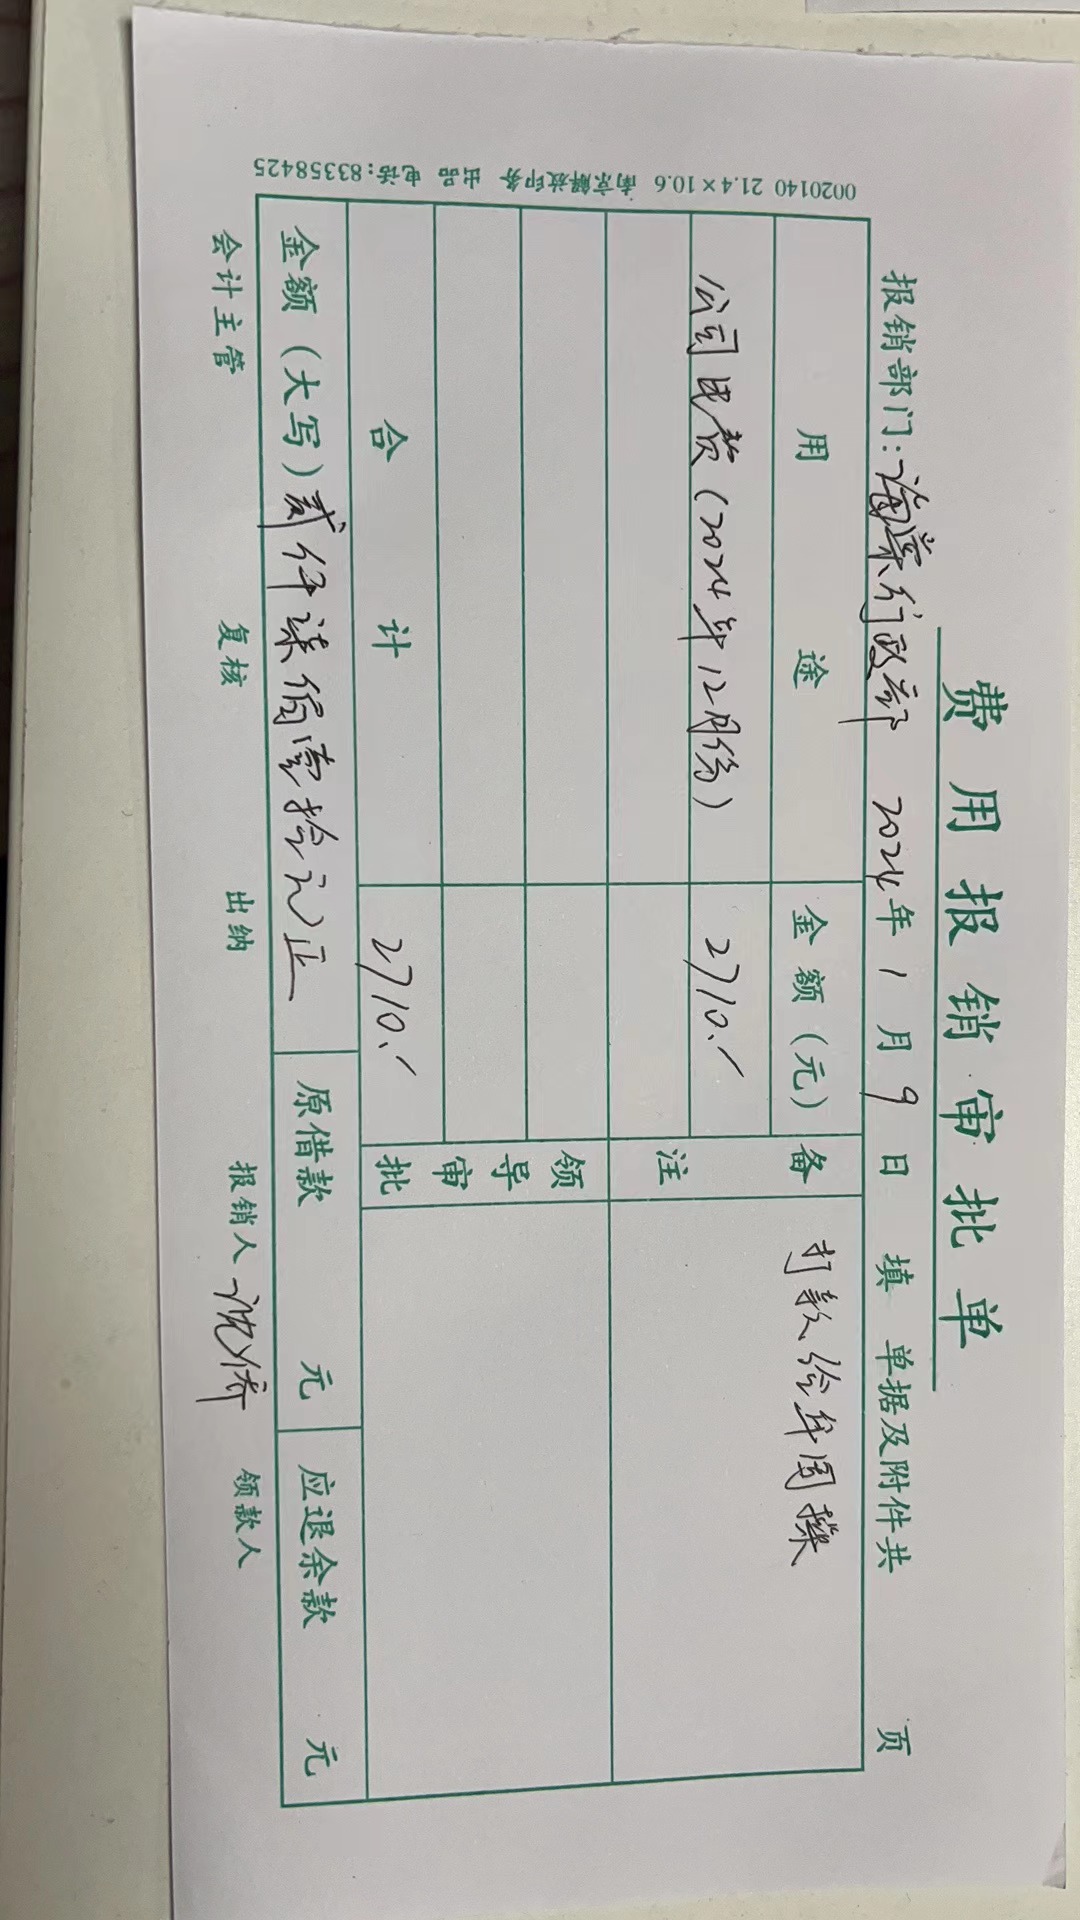 费用报销审批单
报销部门：海棠行政部 2024年1月9日 填 单据及附件共 页
用途 金额（元） 备注 打款给年国攥
公司电费（2024年12月份） 2710.
领导审批
合计 2710.
金额（大写）贰仟柒佰壹拾元正 原借款 元 应退余款 元
会计主管 复核 出纳 报销人 沈侨 领款人
0020140 21.4×10.6 南京解放印务 出品 电话：83358425